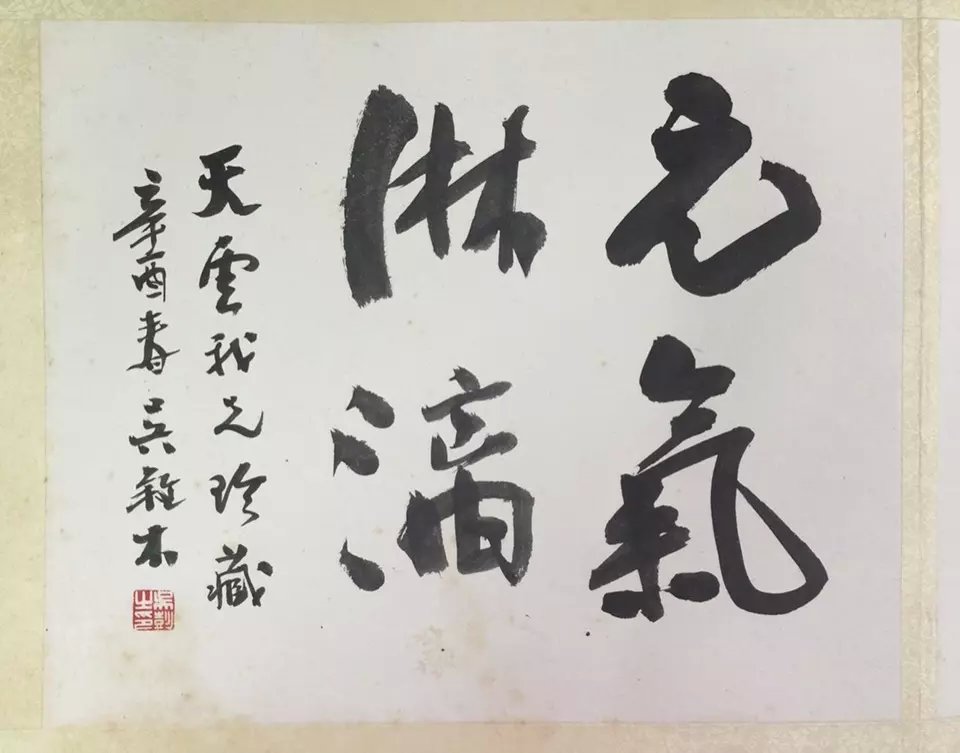 元氣
淋漓
天雲我兄珍藏
辛酉春吳穀木